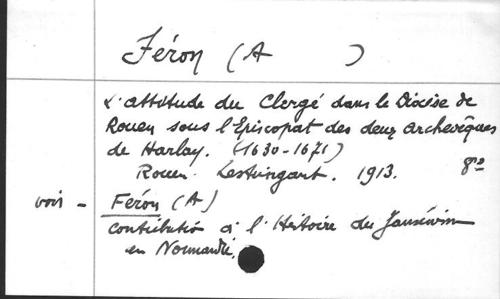 Féron (A      )
L'attitude du Clergé dans le Diocèse de
Rouen sous l'Episcopat des deux archevêques
de Harlay. (1630-1671)
Rouen. Lestringant. 1913. 8º
voir - Féron (A)
contribution à l'Histoire du Jansénisme
en Normandie.